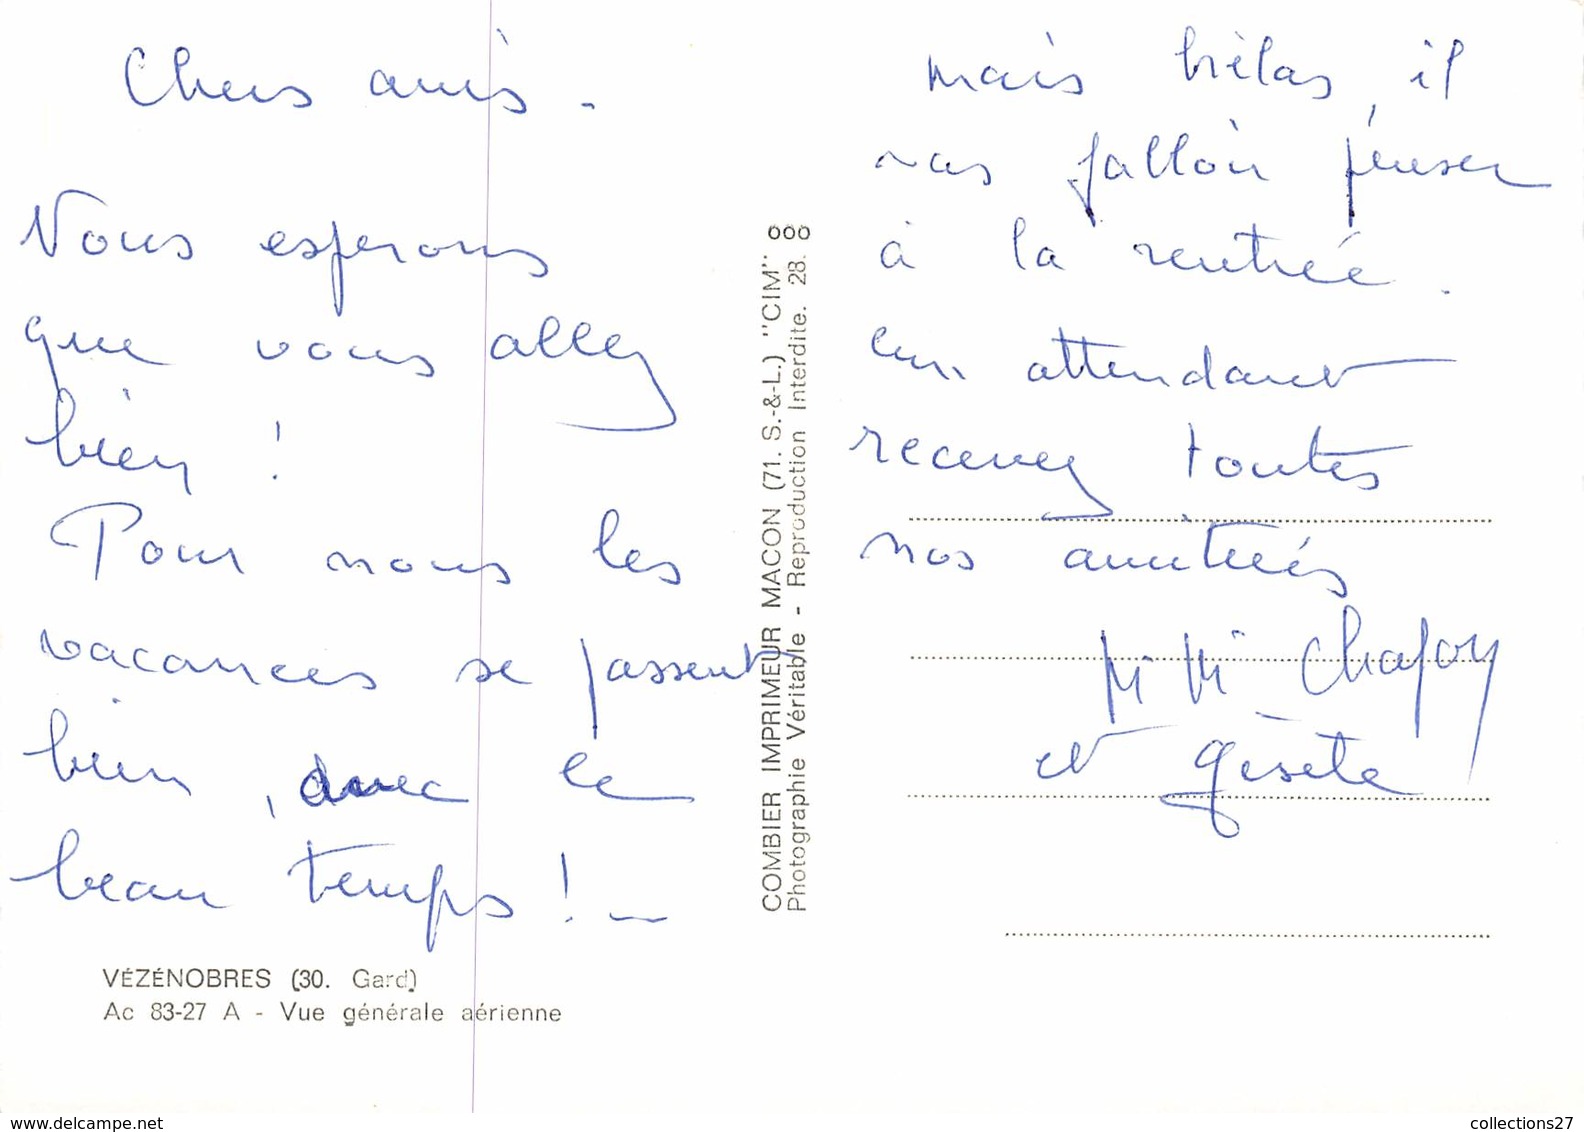 Chers amis.
Nous esperons
que vous allez
bien !
Pour nous les
vacances se passent
bien, avec le
beau temps ! _
VÉZÉNOBRES (30. Gard)
Ac 83-27 A - Vue générale aérienne
COMBIER IMPRIMEUR MACON (71. S.-&-L.) "CIM"
Photographie Véritable - Reproduction Interdite. 28.
mais hélas, il
vas falloir penser
à la rentrée.
en attendant
recevez toutes
nos amitiés
Mimi
et
www.delcampe.net
collections27